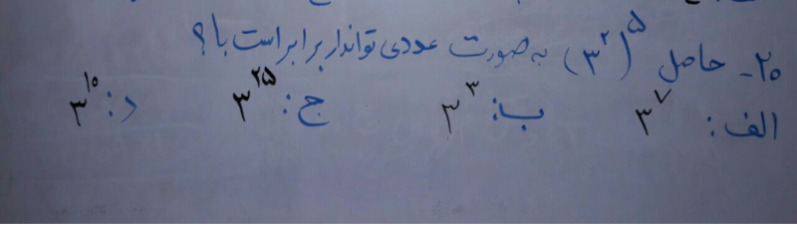 ۲۰- حاصل (۳^۲)^۵ به صورت عددی تواندار برابر است با؟
الف: ۳^۷ ب: ۳^۳ ج: ۳^۲۵ د: ۳^۱۰